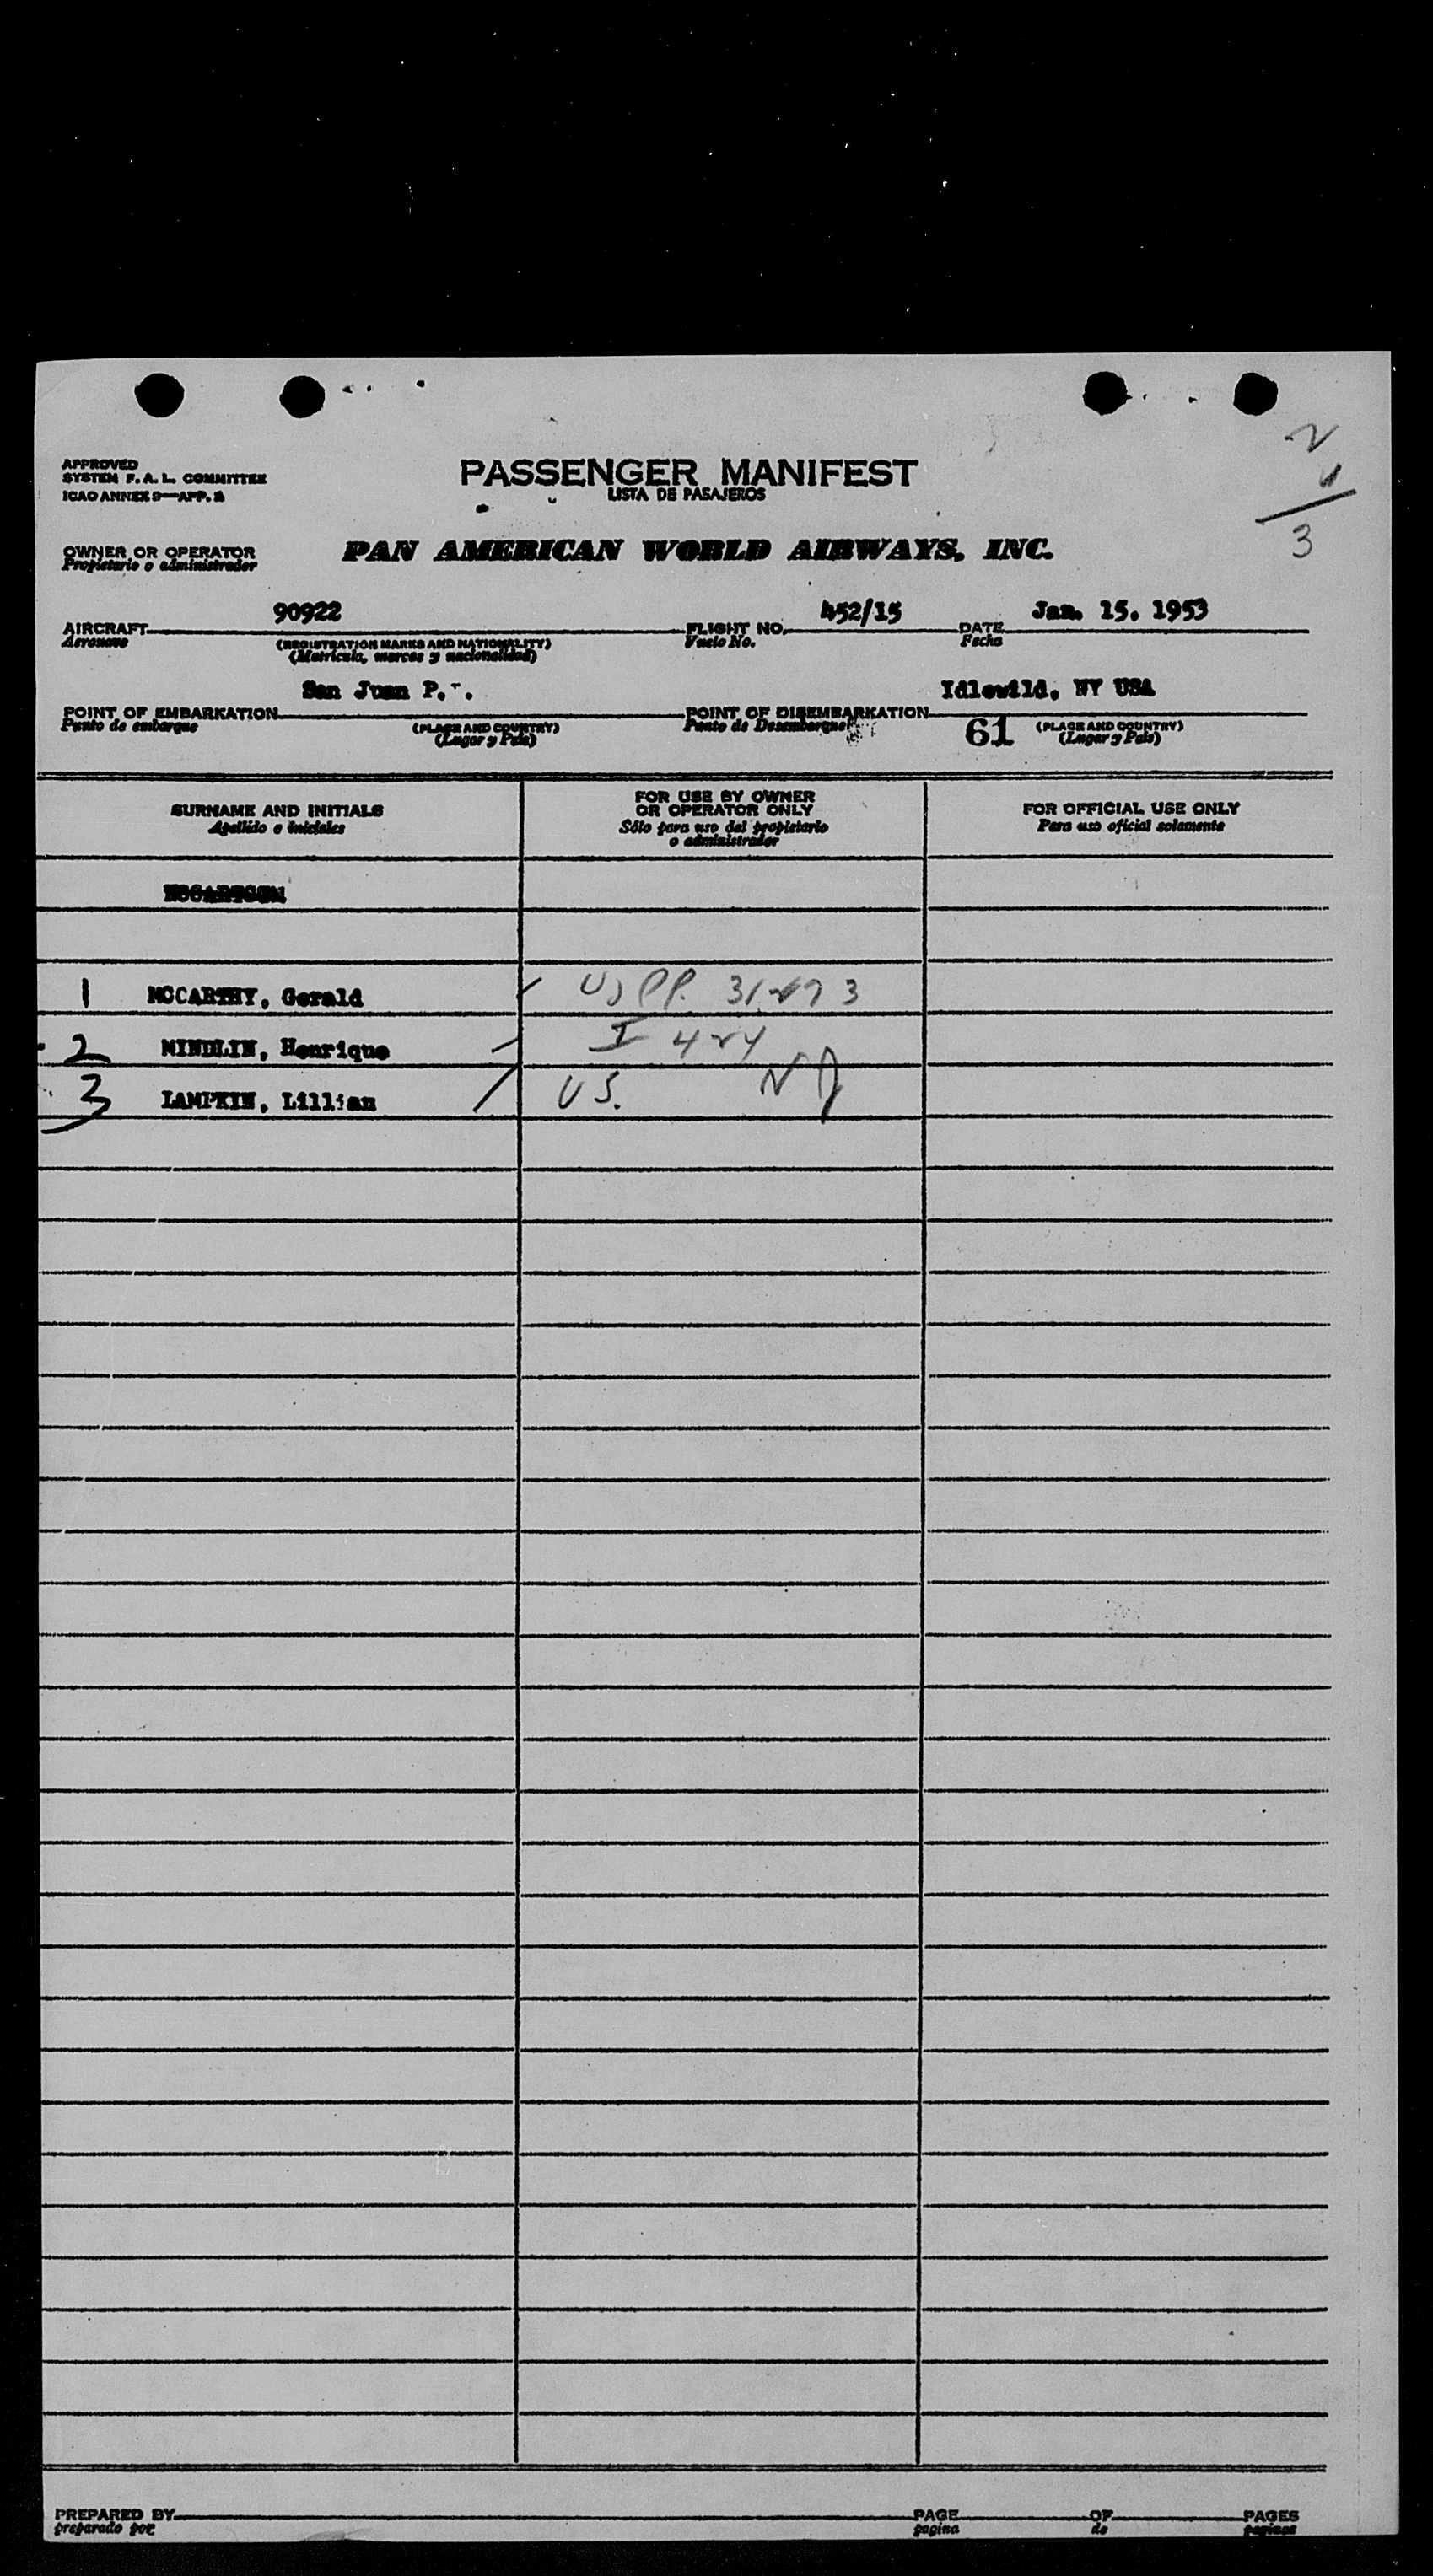 2
1
3
APPROVED
SYSTEM F. A. L. COMMITTEE
ICAO ANNEX 9—APP. 2
PASSENGER MANIFEST
LISTA DE PASAJEROS
OWNER OR OPERATOR
Propietario o administrador
PAN AMERICAN WORLD AIRWAYS, INC.
AIRCRAFT 90922 FLIGHT NO. 452/15 DATE Jan. 15, 1953
Aeronave (REGISTRATION MARKS AND NATIONALITY) Vuelo No. Fecha
(Matrícula, marcas y nacionalidad)
POINT OF EMBARKATION San Juan P. POINT OF DISEMBARKATION Idlewild, NY USA
Punto de embarque (PLACE AND COUNTRY) Punto de Desembarque 61 (PLACE AND COUNTRY)
(Lugar y País) (Lugar y País)
SURNAME AND INITIALS
Apellido e iniciales
FOR USE BY OWNER
OR OPERATOR ONLY
Sólo para uso del propietario
o administrador
FOR OFFICIAL USE ONLY
Para uso oficial solamente
1 MCCARTHY, Gerald US PP.
2 MINDLIN, Henrique I 424
3 LAMPKIN, Lillian U S.
PREPARED BY PAGE OF PAGES
preparado por pagina de paginas